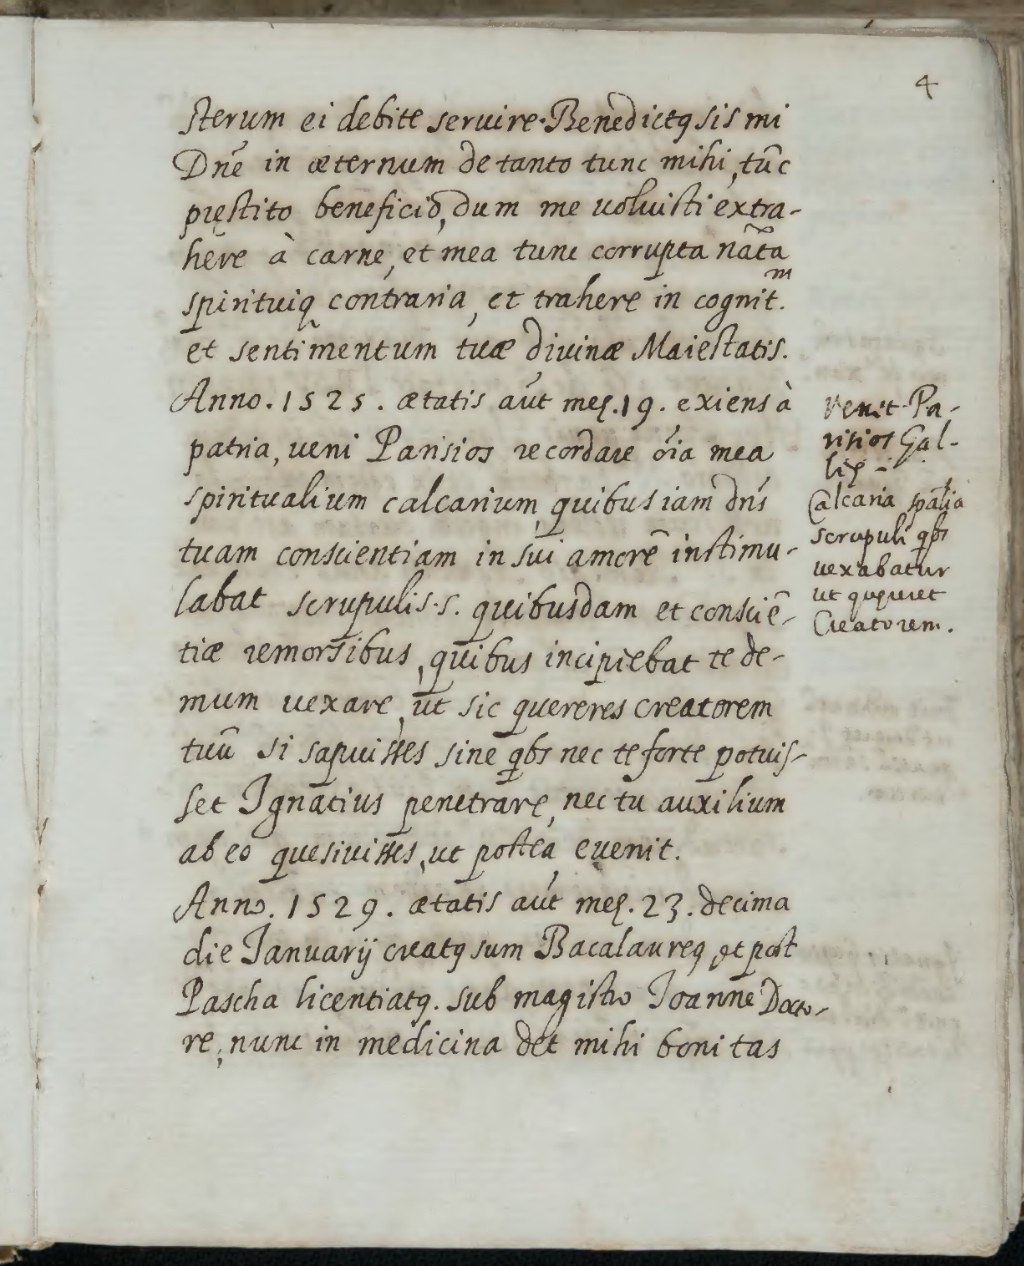 4
sterum ei debite seruire. Benedictꝯ sis mi
Dñe in æternum de tanto tunc mihi, tũc
pręstito beneficio, dum me uoluisti extra-
here à carne, et mea tunc corrupta nãta
spirituiq̨ contraria, et trahere in cognit.ᵐ
et sentimentum tuæ diuinæ Maiestatis.
Anno. 1525. ætatis aũt meę. 19. exiens à
patria, ueni Parisios recordare oĩa mea
spiritualium calcarium, quibus iam dñs
tuam conscientiam in sui amorẽ instimu-
labat scrupulis .s. quibusdam et consciẽ-
tiæ remorsibus, quibus incipiebat te de-
mum uexare, ut sic quereres creatorem
tuũ si sapuisses sine qbs nec te forte potuis-
set Ignatius penetrare, nec tu auxilium
ab eo quesiuisses, ut postea euenit.
Anno. 1529. ætatis aũt meę. 23. decima
die Ianuarij creatꝯ sum Bacalaureꝯ, et post
Pascha licentiatꝯ. sub magistro Ioanne Docto-
re, nunc in medicina det mihi bonitas
Venit Pa-
risios Gal-
lię -
Calcaria spãlia
scrupuli qbs
uexabatur
ut quęreret
Creatorem.